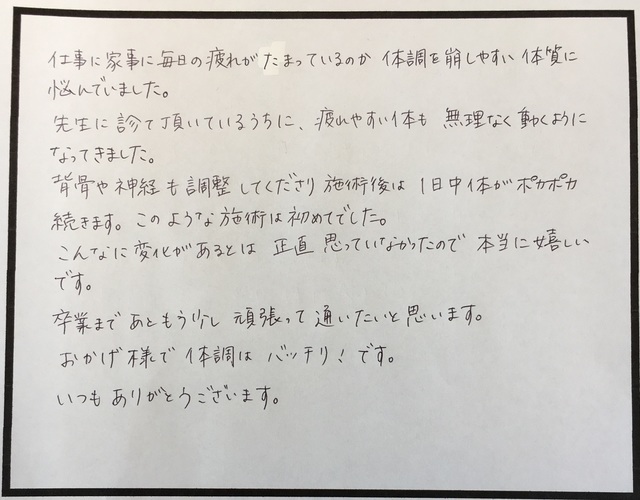 仕事に家事に毎日の疲れがたまっているのか 体調を崩しやすい体質に
悩んでいました。
先生に診て頂いているうちに、疲れやすい体も 無理なく動くように
なってきました。
背骨や神経も調整してくださり施術後は 1日中体がポカポカ
続きます。このような施術は初めてでした。
こんなに変化があるとは 正直 思っていなかったので 本当に嬉しい
です。
卒業まで あともう少し 頑張って 通いたいと思います。
おかげ様で 体調は バッチリ! です。
いつも ありがとうございます。